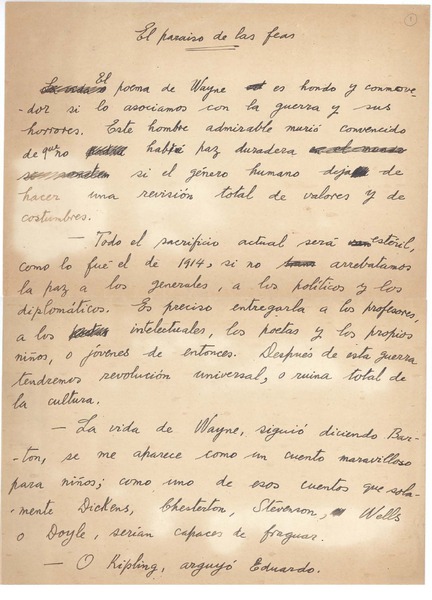 1
El paraiso de las feas
El
poema de Wayne es hondo y conmove-
-dor si lo asociamos con la guerra y sus
horrores. Este hombre admirable murió convencido
de que no habrá paz duradera
si el género humano deja de
hacer una revisión total de valores y de
costumbres.
— Todo el sacrificio actual será estéril,
como lo fué el de 1914, si no arrebatamos
la paz a los generales, a los políticos y los
diplomáticos. Es preciso entregarla a los profesores,
a los intelectuales, los poetas y los propios
niños, o jóvenes de entonces. Después de esta guerra
tendremos revolución universal, o ruina total de
la cultura.
— La vida de Wayne, siguió diciendo Bar-
-ton, se me aparece como un cuento maravilloso
para niños; como uno de esos cuentos que sola-
-mente Dickens, Chesterton, Stevenson, Wells
o Doyle, serían capaces de fraguar.
— O Kipling, arguyó Eduardo.